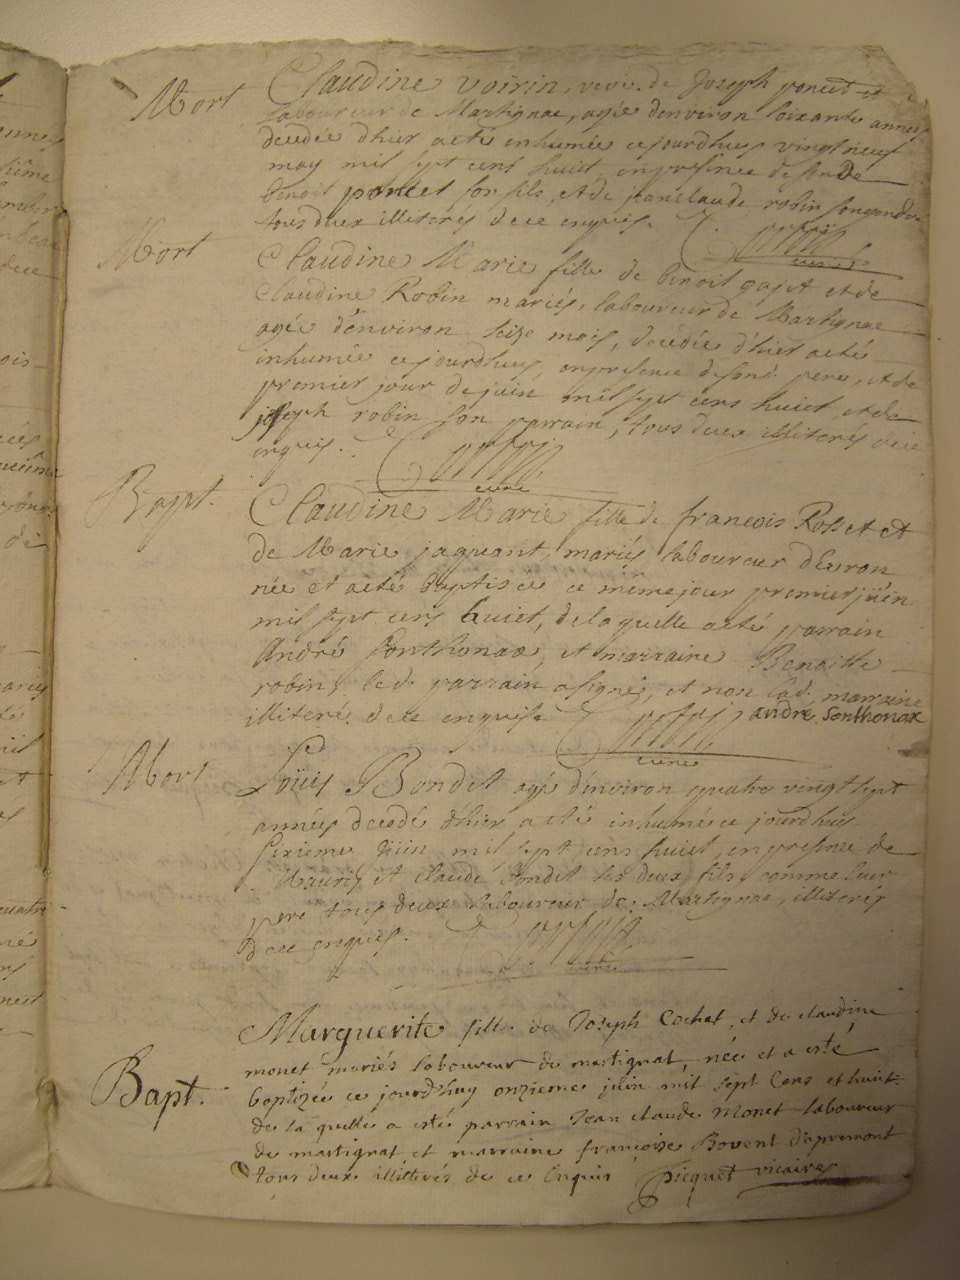 Mort
Claudine Voirin, veuve de Joseph poncet
laboureur de Martignac, agée denviron soixante années
decedée d'hier a eté inhumée ce jourdhuy vingt neuf
may mil sept cent huit, en presence de
benoit poncet son fils, et de jean claude robin son gendre
tous deux illiterés de ce enquis.
curé
Mort
Claudine Marie fille de benoit et de
Claudine Robin mariés, laboureur de Martignac
agée d'environ seize mois, decedée d'hier a eté
inhumée ce jourdhuy, en presence de sond. pere, et de
premier jour de juin mil sept cens huict et de
joseph robin son parrain, tous deux illiterés de ce
enquis.
curé
Bapt.
Claudine Marie fille de francois Rosset et
de Marie jaqueant, mariés laboureur d'Evron
née et a eté baptisée ce meme jour premier juin
mil sept cens huict, de laquelle a eté parrain
André Sonthonax, et marraine Benoitte
robin, le d. parrain a signé, et non lad. marraine
illiteré de ce enquise
andre Sonthonax
curé
Mort
Loüis Bondet agé d'environ quatre vingt sept
années decedé d'hier a eté inhumé ce jourdhuy
sixieme juin mil sept cens huict, en presence de
Mauris et Claude Bondet ses deux fils comme leur
pere tous deux laboureur de Martignac, illiterés
de ce enquis.
curé
Bapt.
Marguerite fille de Joseph Cochet, et de claudine
monet mariés laboureur de martignat, née et a esté
baptizée ce jourd'huy onzieme juin mil sept Cens et huit.
de la quelle a esté parrain Jean claude Monet laboureur
de martignat et marraine françoise Bovent d'apremont
tous deux illitterés de ce Enquis Picquet vicaire